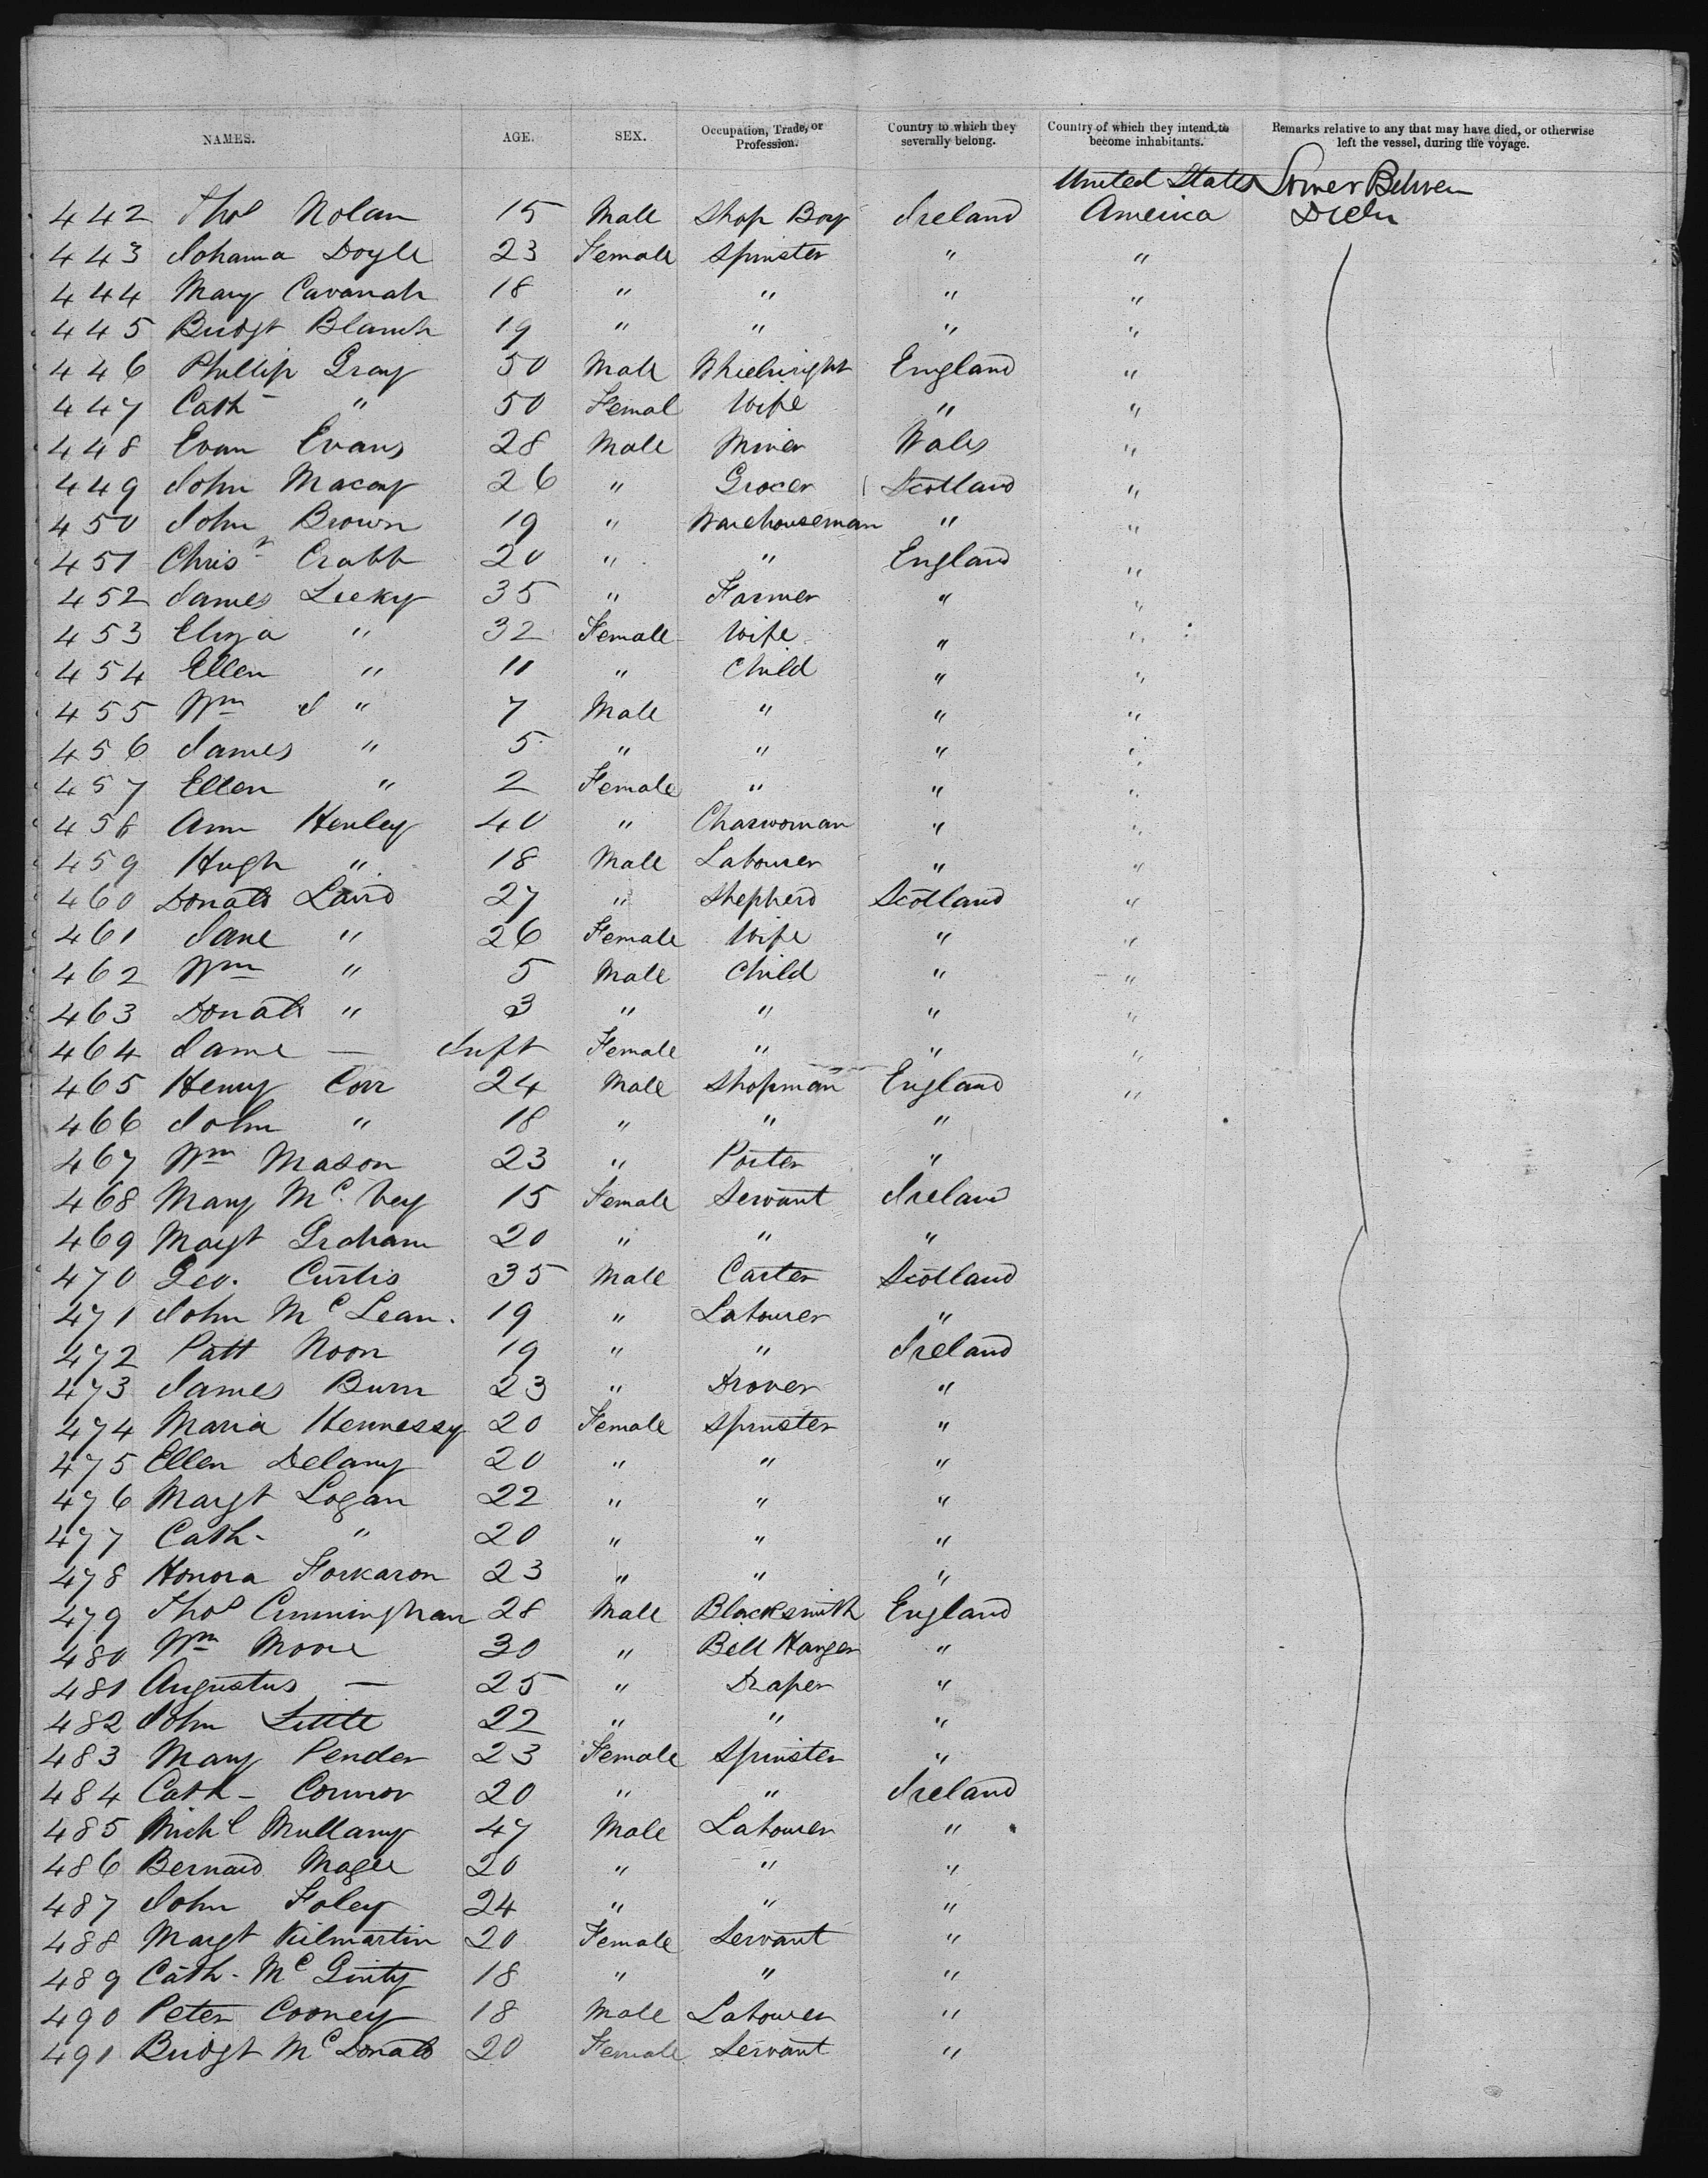 NAMES. AGE. SEX. Occupation, Trade, or Profession. Country to which they severally belong. Country of which they intend to become inhabitants. Remarks relative to any that may have died, or otherwise left the vessel, during the voyage.
United States
442 Thos Nolan 15 Male Shop Boy Ireland America
443 Johanna Doyle 23 Female Spinster " "
444 Mary Cavanah 18 " " " "
445 Bridgt Blanch 19 " " " "
446 Phillip Gray 50 Male Wheelwright England "
447 Cath " 50 Femal Wife " "
448 Evan Evans 28 Male Miner Wales "
449 John Macay 26 " Grocer Scotland "
450 John Brown 19 " Warehouseman " "
451 Chrisr Crabb 20 " " England "
452 James Leeky 35 " Farmer " "
453 Eliza " 32 Female Wife " "
454 Ellen " 11 " Child " "
455 Wm J " 7 Male " " "
456 James " 5 " " " "
457 Ellen " 2 Female " " "
458 Ann Henley 40 " Charwoman " "
459 Hugh " 18 Male Labourer " "
460 Donald Laird 27 " Shepherd Scotland "
461 Jane " 26 Female Wife " "
462 Wm " 5 Male Child " "
463 Donald " 3 " " " "
464 Jane — Inft Female " " "
465 Henry Corr 24 Male Shopman England "
466 John " 18 " " "
467 Wm Mason 23 " Porter "
468 Mary Mc Vey 15 Female Servant Ireland
469 Margt Graham 20 " " "
470 Geo. Curtis 35 Male Carter Scotland
471 John Mc Lean. 19 " Labourer "
472 Patt Noon 19 " " Ireland
473 James Burn 23 " Drover "
474 Maria Hennessy 20 Female Spinster "
475 Ellen Delany 20 " " "
476 Margt Logan 22 " " "
477 Cath- " 20 " " "
478 Honora Forkaron 23 " " "
479 Thos Cunningham 28 Male Blacksmith England
480 Wm Moore 30 " Bell Hanger "
481 Augustus — 25 " Draper "
482 John Little 22 " " "
483 Mary Pender 23 Female Spinster "
484 Cath- Connor 20 " " Ireland
485 Michl Mullany 47 Male Labourer "
486 Bernard Magee 20 " " "
487 John Foley 24 " " "
488 Margt Kilmartin 20 Female Servant "
489 Cath- Mc Ginty 18 " " "
490 Peter Cooney 18 Male Labourer "
491 Bridgt Mc Donald 20 Female Servant "